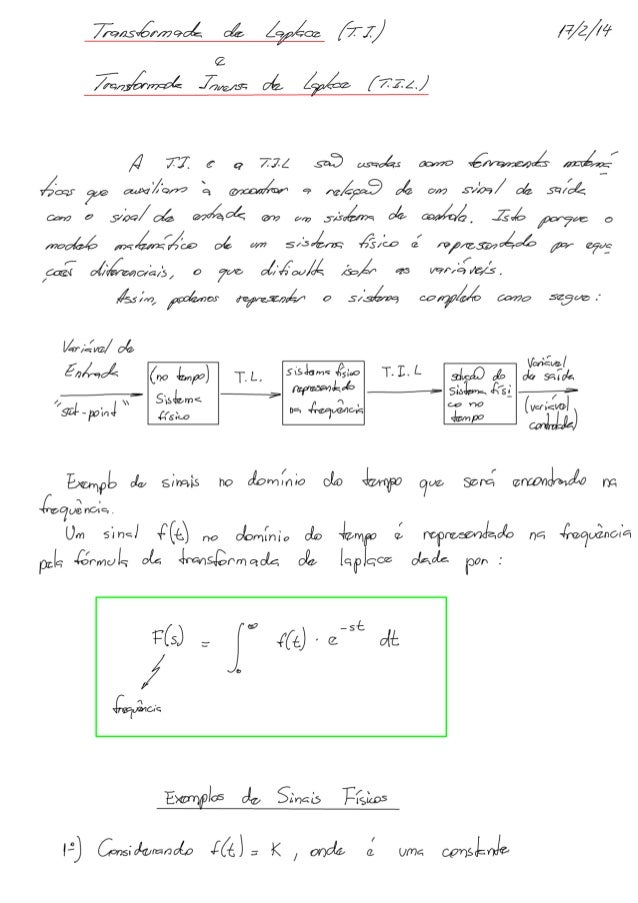 Transformada de Laplace (T.I.) 17/2/14
e
Transformada Inversa de Laplace (T.I.L.)
A T.I. e a T.I.L são usadas como ferramenta matemá
ticas que auxiliam à encontrar a relação de um sinal de saída
com o sinal de entrada em um sistema de controle. Isto porque o
modelo matemático de um sistema físico é representado por equa
ções diferenciais, o que dificulta isolar as variáveis.
Assim, podemos representar o sistema completo como segue:
Variável de
Entrada
"set-point"
(no tempo)
Sistema
físico
T.L.
sistema físico
representado
na frequência
T.I.L
solução do
Sistema físi
co no
tempo
Variável
de saída
(variável
controlada)
Exemplo de sinais no domínio do tempo que será encontrado na
frequência.
Um sinal f(t) no domínio do tempo é representado na frequência
pela fórmula da transformada de laplace dada por:
F(s) = ∫₀^∞ f(t) · e^-st dt
frequência
Exemplos de Sinais Físicos
1º) Considerando f(t) = K, onde é uma constante